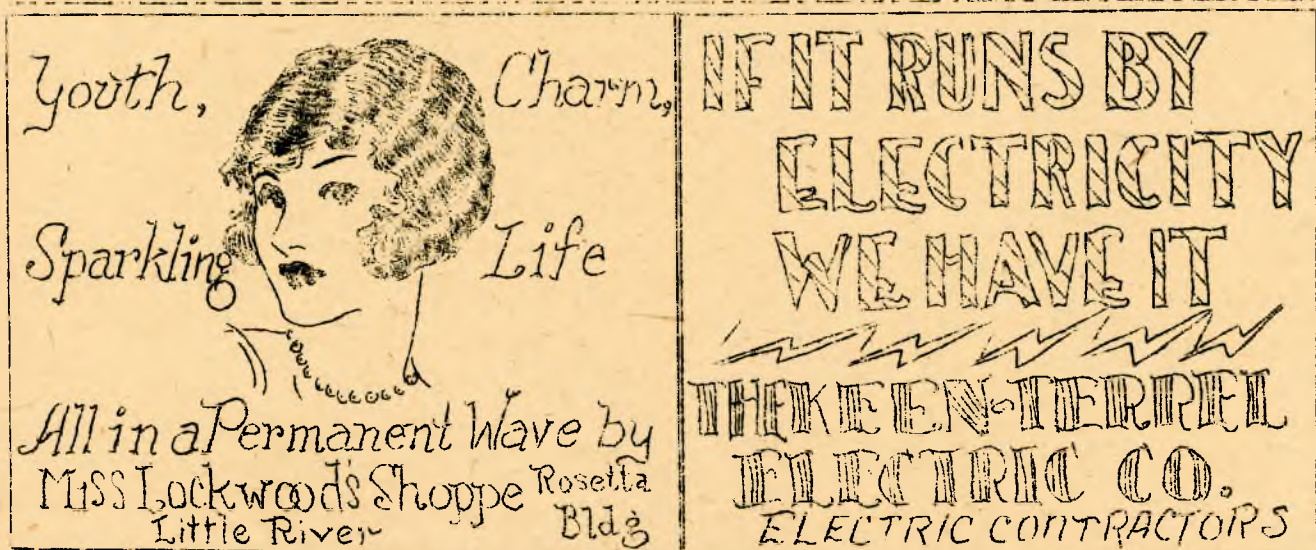 Youth, Charm,
Sparkling Life
All in a Permanent Wave by
Miss Lockwood's Shoppe Rosetta
Little River Bldg
IF IT RUNS BY
ELECTRICITY
WE HAVE IT
THE KEEN-TERREL
ELECTRIC CO.
ELECTRIC CONTRACTORS